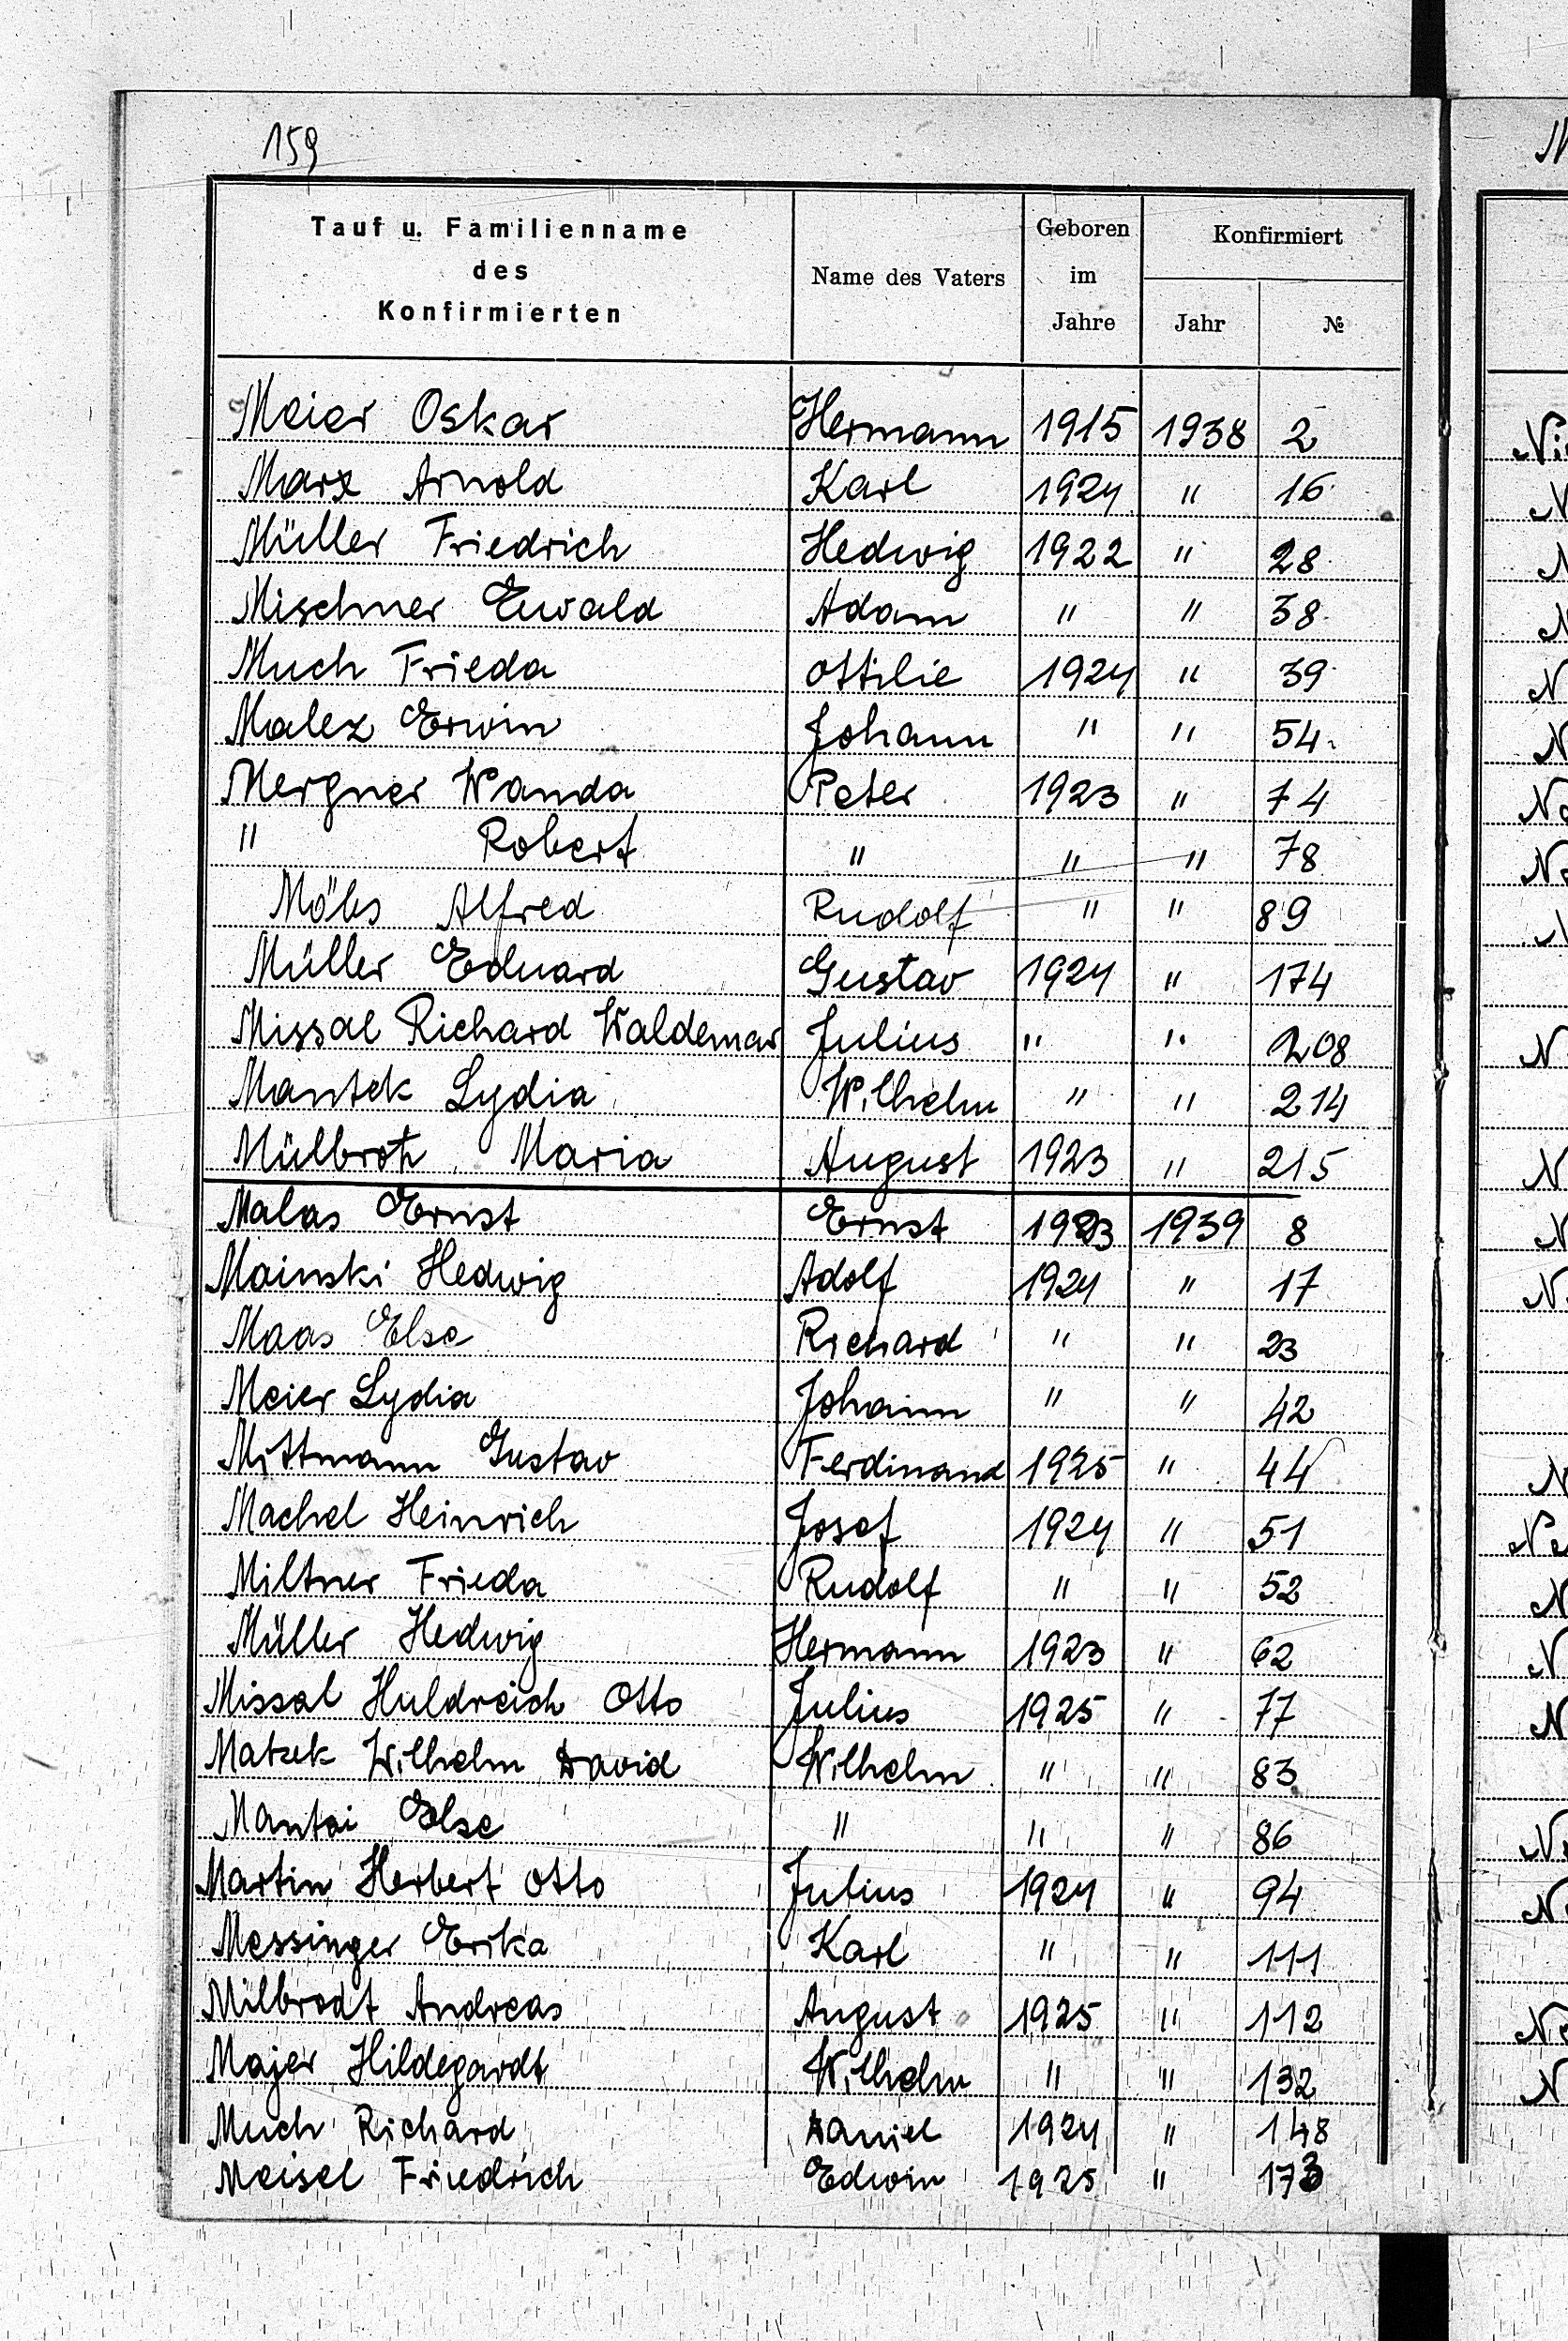 159
Tauf u. Familienname des Konfirmierten | Name des Vaters | Geboren im Jahre | Konfirmiert Jahr | №
Meier Oskar Hermann 1915 1938 2
Marx Arnold Karl 1924 " 16
Müller Friedrich Hedwig 1922 " 28
Mischner Ewald Adam " " 38
Much Frieda Ottilie 1924 " 39
Malez Erwin Johann " " 54
Mergner Wanda Peter 1923 " 74
" Robert " " " 78
Möbs Alfred Rudolf " " 89
Müller Eduard Gustav 1924 " 174
Missal Richard Waldemar Julius " " 208
Mantek Lydia Wilhelm " " 214
Mülbrot Maria August 1923 " 215
Malas Ernst Ernst 1923 1939 8
Mainski Hedwig Adolf 1924 " 17
Maas Else Richard " " 23
Meier Lydia Johann " " 42
Mittmann Gustav Ferdinand 1925 " 44
Machel Heinrich Josef 1924 " 51
Miltner Frieda Rudolf " " 52
Müller Hedwig Hermann 1923 " 62
Missal Huldreich Otto Julius 1925 " 77
Matzek Wilhelm David Wilhelm " " 83
Mantai Else " " " 86
Martin Herbert Otto Julius 1924 " 94
Messinger Erika Karl " " 111
Milbrodt Andreas August 1925 " 112
Majer Hildegardt Wilhelm " " 132
Much Richard Daniel 1924 " 148
Meisel Friedrich Edwin 1925 " 173